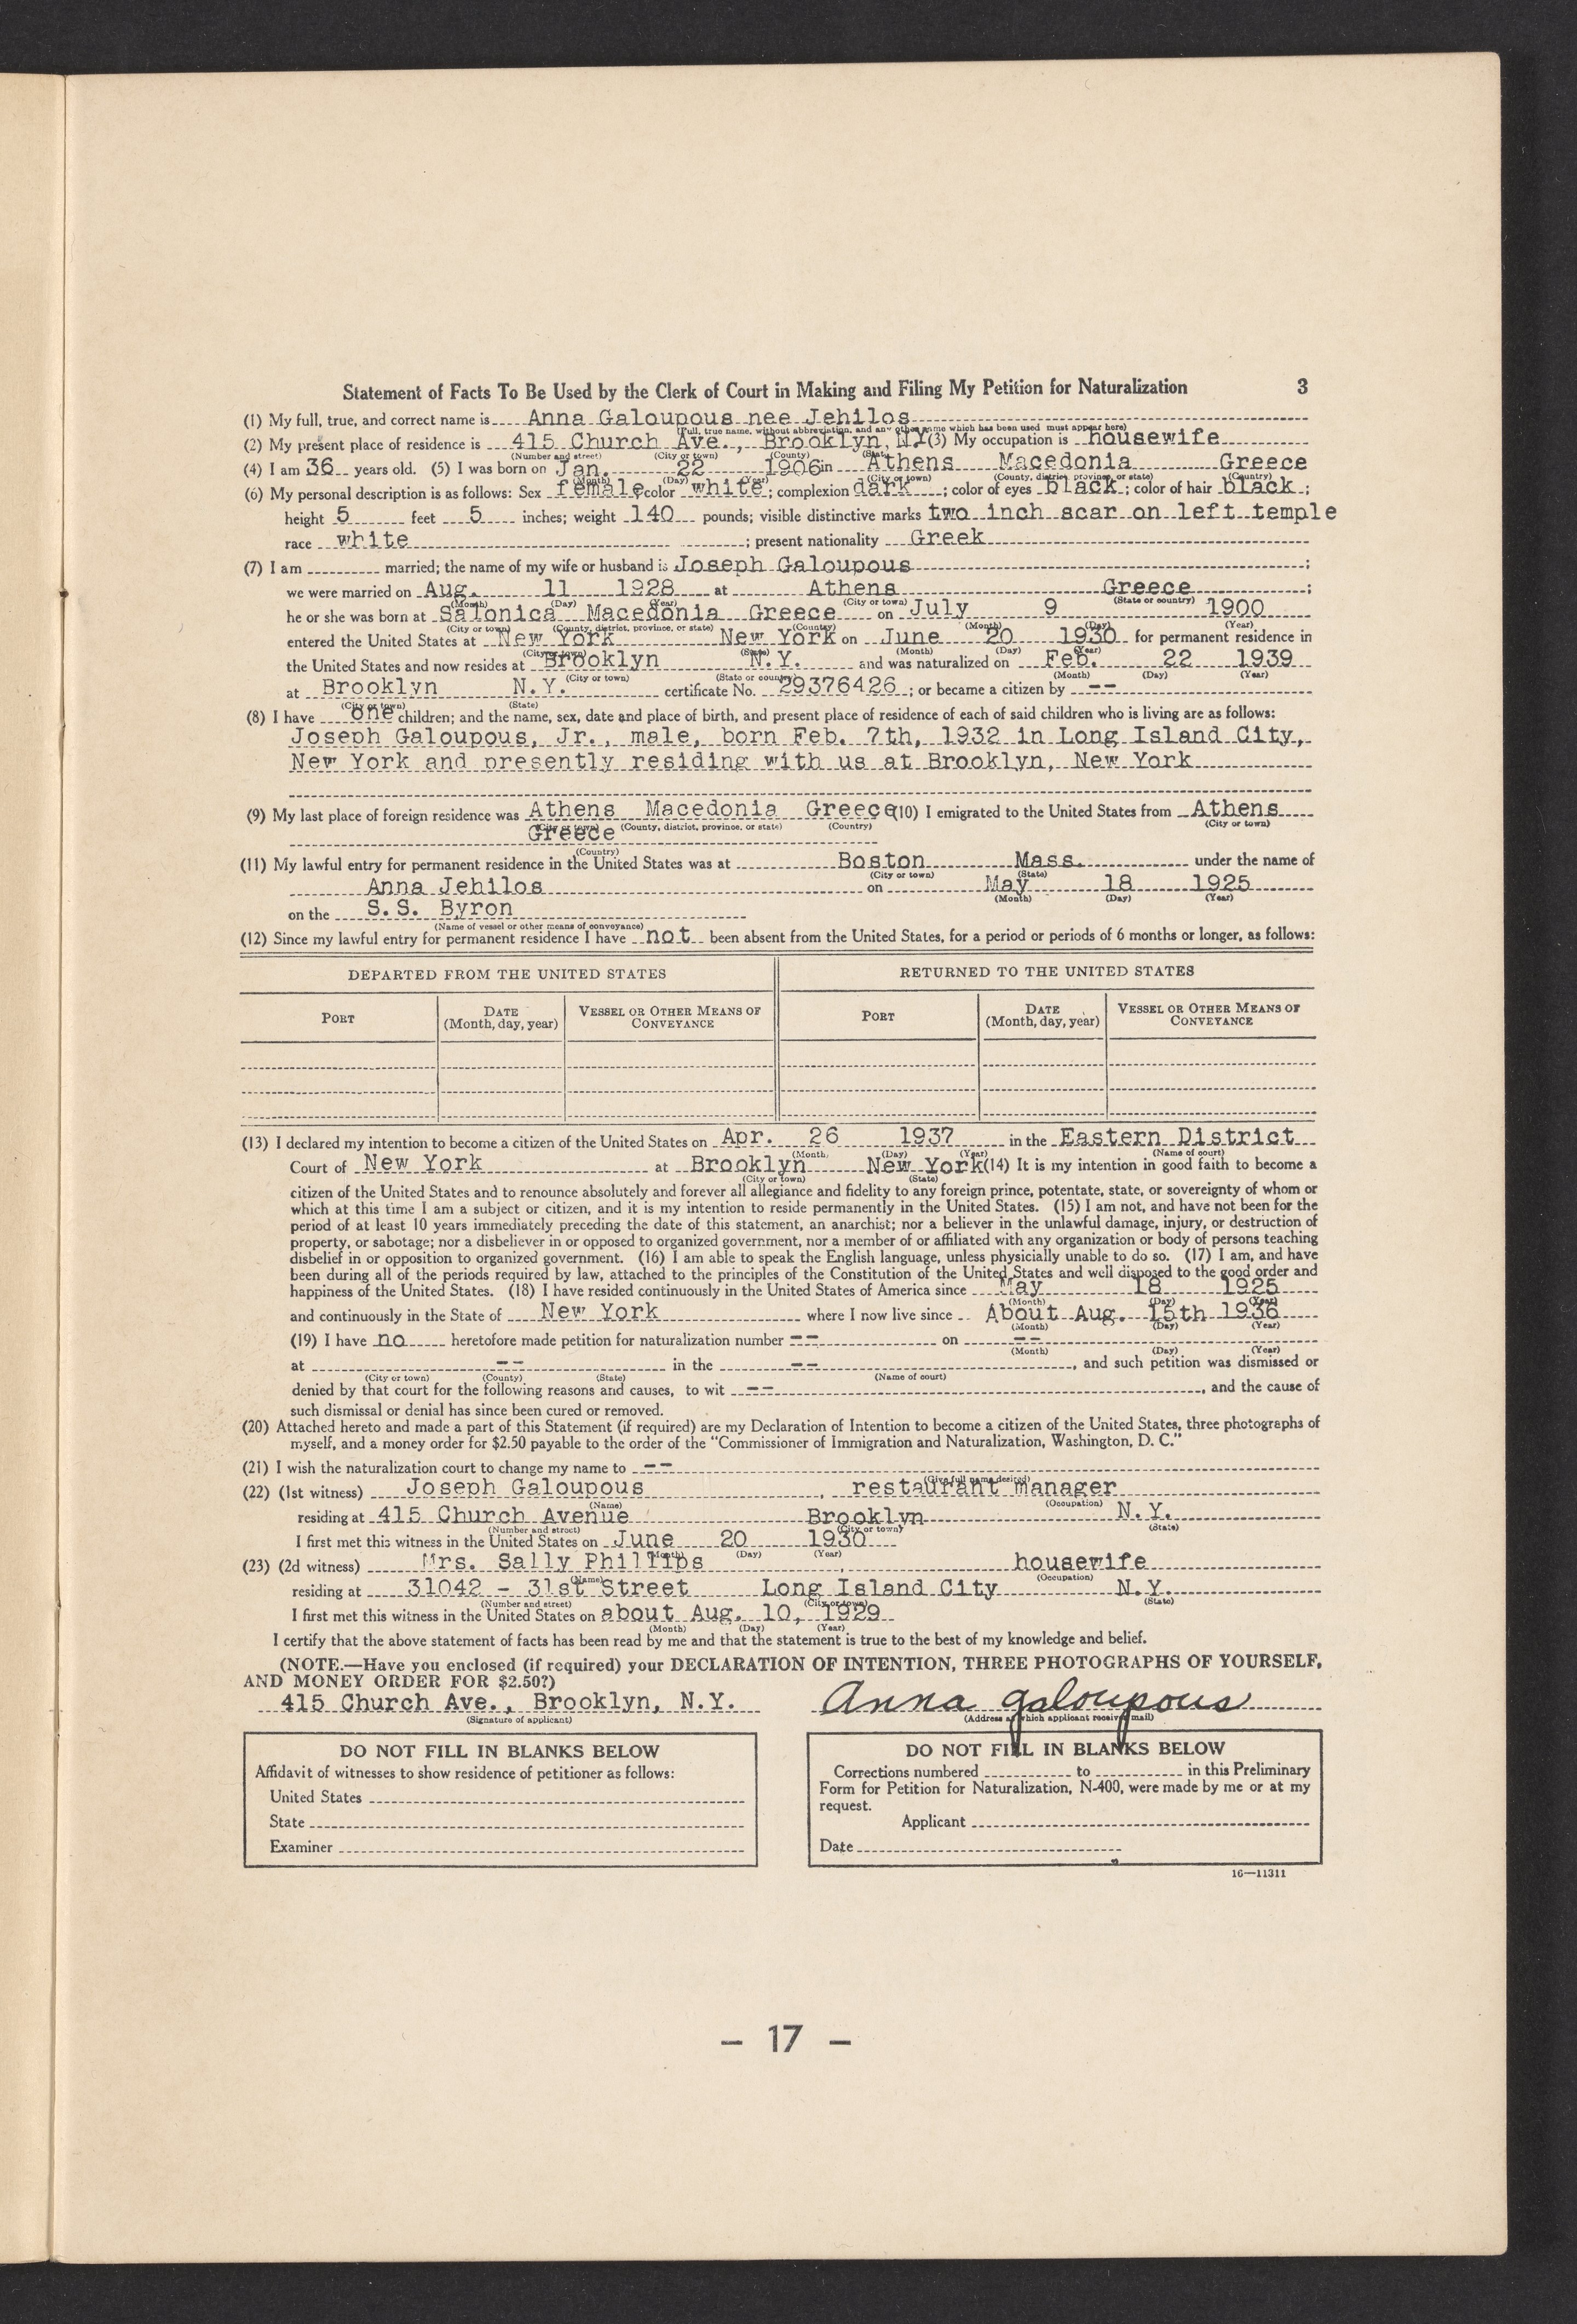 Statement of Facts To Be Used by the Clerk of Court in Making and Filing My Petition for Naturalization 3
(1) My full, true, and correct name is Anna Galoupous nee Jehilos
(Full, true name, without abbreviation, and any other name which has been used must appear here)
(2) My present place of residence is 415 Church Ave., Brooklyn, NY (3) My occupation is housewife
(Number and street) (City or town) (County) (State)
(4) I am 36 years old. (5) I was born on Jan. 22 1906 in Athens Macedonia Greece
(Month) (Day) (Year) (City or town) (County, district, province, or state) (Country)
(6) My personal description is as follows: Sex female, color white; complexion dark; color of eyes black; color of hair black;
height 5 feet 5 inches; weight 140 pounds; visible distinctive marks two inch scar on left temple
race white; present nationality Greek
(7) I am married; the name of my wife or husband is Joseph Galoupous;
we were married on Aug. 11 1928 at Athens Greece;
(Month) (Day) (Year) (City or town) (State or country)
he or she was born at Salonica Macedonia Greece on July 9 1900
(City or town) (County, district, province, or state) (Country) (Month) (Day) (Year)
entered the United States at New York New York on June 20 1930 for permanent residence in
(City or town) (State) (Month) (Day) (Year)
the United States and now resides at Brooklyn N.Y. and was naturalized on Feb. 22 1939
(City or town) (State or country) (Month) (Day) (Year)
at Brooklyn N.Y. certificate No. 29376426; or became a citizen by --
(City or town) (State)
(8) I have one children; and the name, sex, date and place of birth, and present place of residence of each of said children who is living are as follows:
Joseph Galoupous, Jr., male, born Feb. 7th, 1932 in Long Island City,
New York and presently residing with us at Brooklyn, New York
(9) My last place of foreign residence was Athens Macedonia Greece (10) I emigrated to the United States from Athens
(City or town) (County, district, province, or state) (Country) (City or town)
Greece
(Country)
(11) My lawful entry for permanent residence in the United States was at Boston Mass. under the name of
(City or town) (State)
Anna Jehilos on May 18 1925
(Month) (Day) (Year)
on the S.S. Byron
(Name of vessel or other means of conveyance)
(12) Since my lawful entry for permanent residence I have not been absent from the United States, for a period or periods of 6 months or longer, as follows:
DEPARTED FROM THE UNITED STATES RETURNED TO THE UNITED STATES
PORT DATE (Month, day, year) VESSEL OR OTHER MEANS OF CONVEYANCE PORT DATE (Month, day, year) VESSEL OR OTHER MEANS OF CONVEYANCE
(13) I declared my intention to become a citizen of the United States on Apr. 26 1937 in the Eastern District
(Month) (Day) (Year) (Name of court)
Court of New York at Brooklyn New York (14) It is my intention in good faith to become a
(City or town) (State)
citizen of the United States and to renounce absolutely and forever all allegiance and fidelity to any foreign prince, potentate, state, or sovereignty of whom or
which at this time I am a subject or citizen, and it is my intention to reside permanently in the United States. (15) I am not, and have not been for the
period of at least 10 years immediately preceding the date of this statement, an anarchist; nor a believer in the unlawful damage, injury, or destruction of
property, or sabotage; nor a disbeliever in or opposed to organized government, nor a member of or affiliated with any organization or body of persons teaching
disbelief in or opposition to organized government. (16) I am able to speak the English language, unless physicially unable to do so. (17) I am, and have
been during all of the periods required by law, attached to the principles of the Constitution of the United States and well disposed to the good order and
happiness of the United States. (18) I have resided continuously in the United States of America since May 18 1925
(Month) (Day) (Year)
and continuously in the State of New York where I now live since About Aug. 15th 1936
(Month) (Day) (Year)
(19) I have no heretofore made petition for naturalization number -- on --
(Month) (Day) (Year)
at -- in the --, and such petition was dismissed or
(City or town) (County) (State) (Name of court)
denied by that court for the following reasons and causes, to wit --, and the cause of
such dismissal or denial has since been cured or removed.
(20) Attached hereto and made a part of this Statement (if required) are my Declaration of Intention to become a citizen of the United States, three photographs of
myself, and a money order for $2.50 payable to the order of the "Commissioner of Immigration and Naturalization, Washington, D. C."
(21) I wish the naturalization court to change my name to --
(Give full name desired)
(22) (1st witness) Joseph Galoupous, restaurant manager
(Name) (Occupation)
residing at 415 Church Avenue Brooklyn N.Y.
(Number and street) (City or town) (State)
I first met this witness in the United States on June 20 1930
(Month) (Day) (Year)
(23) (2d witness) Mrs. Sally Phillips, housewife
(Name) (Occupation)
residing at 31042 - 31st Street Long Island City N.Y.
(Number and street) (City or town) (State)
I first met this witness in the United States on about Aug. 10, 1929
(Month) (Day) (Year)
I certify that the above statement of facts has been read by me and that the statement is true to the best of my knowledge and belief.
(NOTE.—Have you enclosed (if required) your DECLARATION OF INTENTION, THREE PHOTOGRAPHS OF YOURSELF,
AND MONEY ORDER FOR $2.50?)
415 Church Ave., Brooklyn, N.Y. Anna Galoupous
(Signature of applicant) (Address at which applicant receives mail)
DO NOT FILL IN BLANKS BELOW
Affidavit of witnesses to show residence of petitioner as follows:
United States
State
Examiner
DO NOT FILL IN BLANKS BELOW
Corrections numbered to in this Preliminary
Form for Petition for Naturalization, N-400, were made by me or at my
request.
Applicant
Date
16—11311
- 17 -